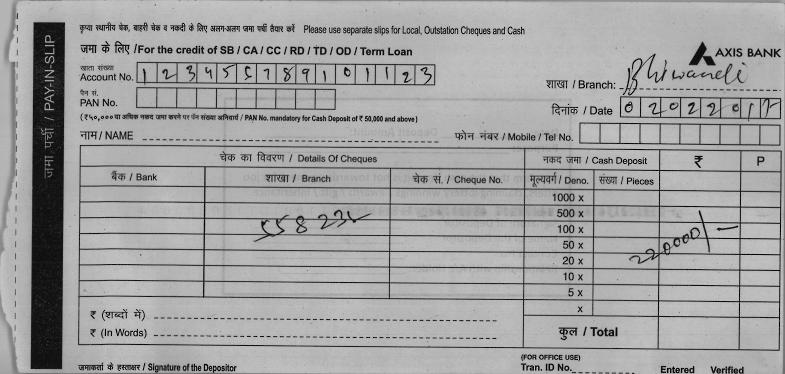 कृपया स्थानीय चेक, बाहरी चेक व नकदी के लिए अलग-अलग जमा पर्ची तैयार करें Please use separate slips for Local, Outstation Cheques and Cash
जमा पर्ची / PAY-IN-SLIP
जमा के लिए /For the credit of SB / CA / CC / RD / TD / OD / Term Loan
AXIS BANK
खाता संख्या
Account No. 1 2 3 4 5 6 7 8 9 1 0 1 1 2 3
शाखा / Branch: Bhiwandi
पैन सं.
PAN No.
दिनांक / Date 0 2 0 2 2 0 1 7
(₹५०,००० या अधिक नकद जमा करने पर पॅन संख्या अनिवार्य / PAN No. mandatory for Cash Deposit of ₹ 50,000 and above)
नाम / NAME
फोन नंबर / Mobile / Tel No.
चेक का विवरण / Details Of Cheques
नकद जमा / Cash Deposit ₹ P
बैंक / Bank शाखा / Branch चेक सं. / Cheque No. मूल्यवर्ग / Deno. संख्या / Pieces
1000 x
500 x
558235
100 x
220000/-
50 x
20 x
10 x
5 x
x
₹ (शब्दों में)
₹ (In Words)
कुल / Total
जमाकर्ता के हस्ताक्षर / Signature of the Depositor
(FOR OFFICE USE)
Tran. ID No. Entered Verified